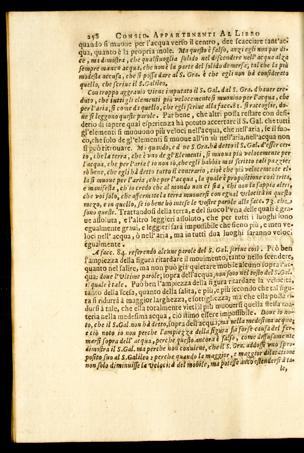 258 CONSID. APPARTENENTI AL LIBRO
quando si muoue per l'acqua verso il centro, dee scacciare tant'ac
qua, quanto è la propria mole. Ma questo è falso, anzi egli non pur di
ce, ma dimostra, che qualsiuoglia solido nel discendere nell'acqua al
sempre manco acqua, che non è la parte del solido demerso; tal che la più
modesta accusa, che si possa dare al S. Gra. è che egli non hà considerato
quello, che scriue il S. Galileo.
Controppo aggrauio viene imputato il S. Gal. dal S. Gra. d'hauer cre
duto, che tutti gli elementi più velocemente si muouono per l'acqua, che
per l'aria, si come di quello, che egli scriue alla facc.
ne si leggono queste parole. Par bene, che altri possa restare con desi-
derio di sapere qual esperienza hà potuto accertare il S. Gal. che tutti
gl'elementi si muouono più veloci nell'acqua, che nell'aria,
co, che solo de gl'elementi si muoue all'in sù nell'aria, nell'acqua non
si può ritrouare.
to, che la terra, che è vno de gl'Elementi, si muoua più velocemente per
l'acqua, che per l'aria; io non sò, che egli habbia mai scritto tali
sò bene, che egli hà detto tutto il contrario, cioè che più velocemente el-
la si muoue per l'aria, che per l'acqua, la quale è
e manifesta, ch'io credo che al mondo non ci sia, chi non la sappia
che voi solo, che affermate la terra muouersi con egual velocità in questo
mezo, e in quello, si come hò inteso le vostre parole alla facc. 73. che
sono queste. Trattandosi della terra, e del fuoco l'vna delle quali è gra-
ue assoluta, e l'altro leggieri assoluto, che per tutti i luoghi sono
egualmente graue, e leggiero sarà impossibile che sieno più, e men ve-
loci nell'acqua, ò nell'aria, ma in tutti dua luoghi saranno veloci
egualmente.
A facc. 84. referendo alcune parole del S. Gal. scriue così. Può ben
l'ampiezza della figura ritardare il mouimento, tanto nello scendere,
quanto nel salire, ma non può già quietare mobile alcuno sopra l'ac-
qua: doue l'vltime parole, sopra dell'acqua, non sono nel testo del S. Gal.
il quale è tale. Può ben l'ampiezza della figura ritardare la velocità,
tanto della scesa, quanto della salita, e più, e più secondo che tal figu-
ra si ridurrà à maggior larghezza, e sottigliezza: mà che ella possa ri-
dursi à tale, che ella totalmente vieti il più muouersi quella stessa ma-
teria nella medesima acqua, ciò stimo essere impossibile. Doue io no-
to, che il S. Gal. non hà detto, sopra dell'acqua; mà nella medesima acqua;
e ciò noto io non perche l'ampiezza della figura sia forse causa del fer-
marsi sopra dell'acqua, perche questo ancora è falso, come diffusamente
dimostra il S. Gal. ma perche non conuiene, che il S. Gra. adduca vno spro-
posito suo al S. Galileo; perche quando la maggior, e maggior dilatazione
non solo diminuisse la velocità del mobile, mà potesse anco estendersi à to-
le,